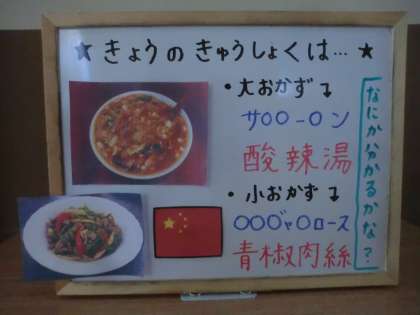 ★きょうの きゅうしょくは…★
・大おかず↴
サ○○-○ン
酸辣湯
・小おかず↴
○○○ジャ○ロース
青椒肉絲
なにか分かるかな？